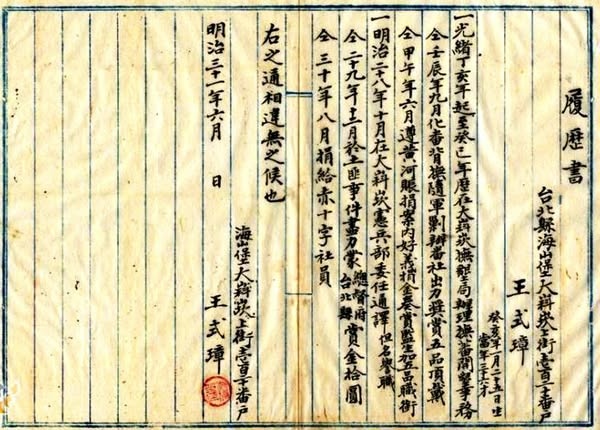 履歷書
台北縣海山堡大嵙崁上街壹百二十番戶
王式璋
癸亥年一月二十五日生
當年三十六才
一光緒丁亥年起至癸巳年歷在大嵙崁撫墾局辦理撫番開墾事務
仝壬辰年九月化番背撫隨軍剿辦番社出力奨賞五品頂戴
仝甲午年六月遵黃河賑捐案內好義捐金奏賞監生加五品職銜
一明治二十八年十月在大嵙崁憲兵部委任通譯但名譽職
仝二十九年十二月於土匪事件盡力蒙總督府台北縣賞金拾圓
仝三十年八月捐給赤十字社員
右之通相違無之候也
明治三十一年六月 日
海山堡大嵙崁上街壹百二十番戶
王式璋